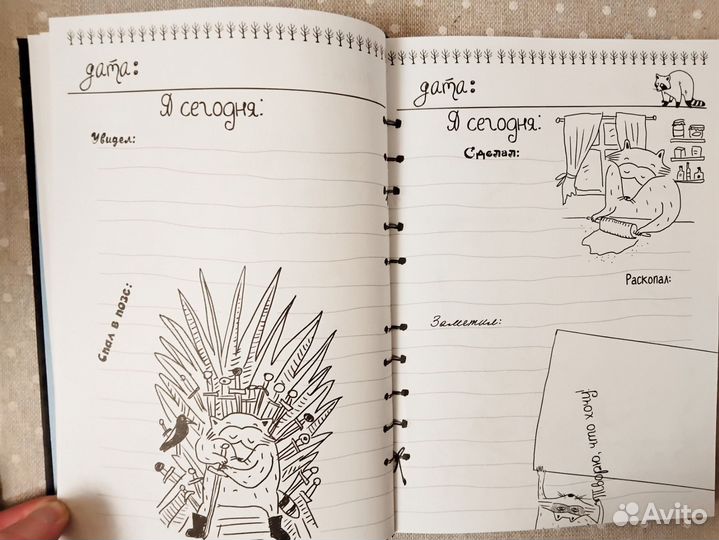 дата:
Я сегодня:
Увидел:
Спал в позе:
дата:
Я сегодня:
Сделал:
Раскопал:
Заметил:
Творю, что хочу!
Avito